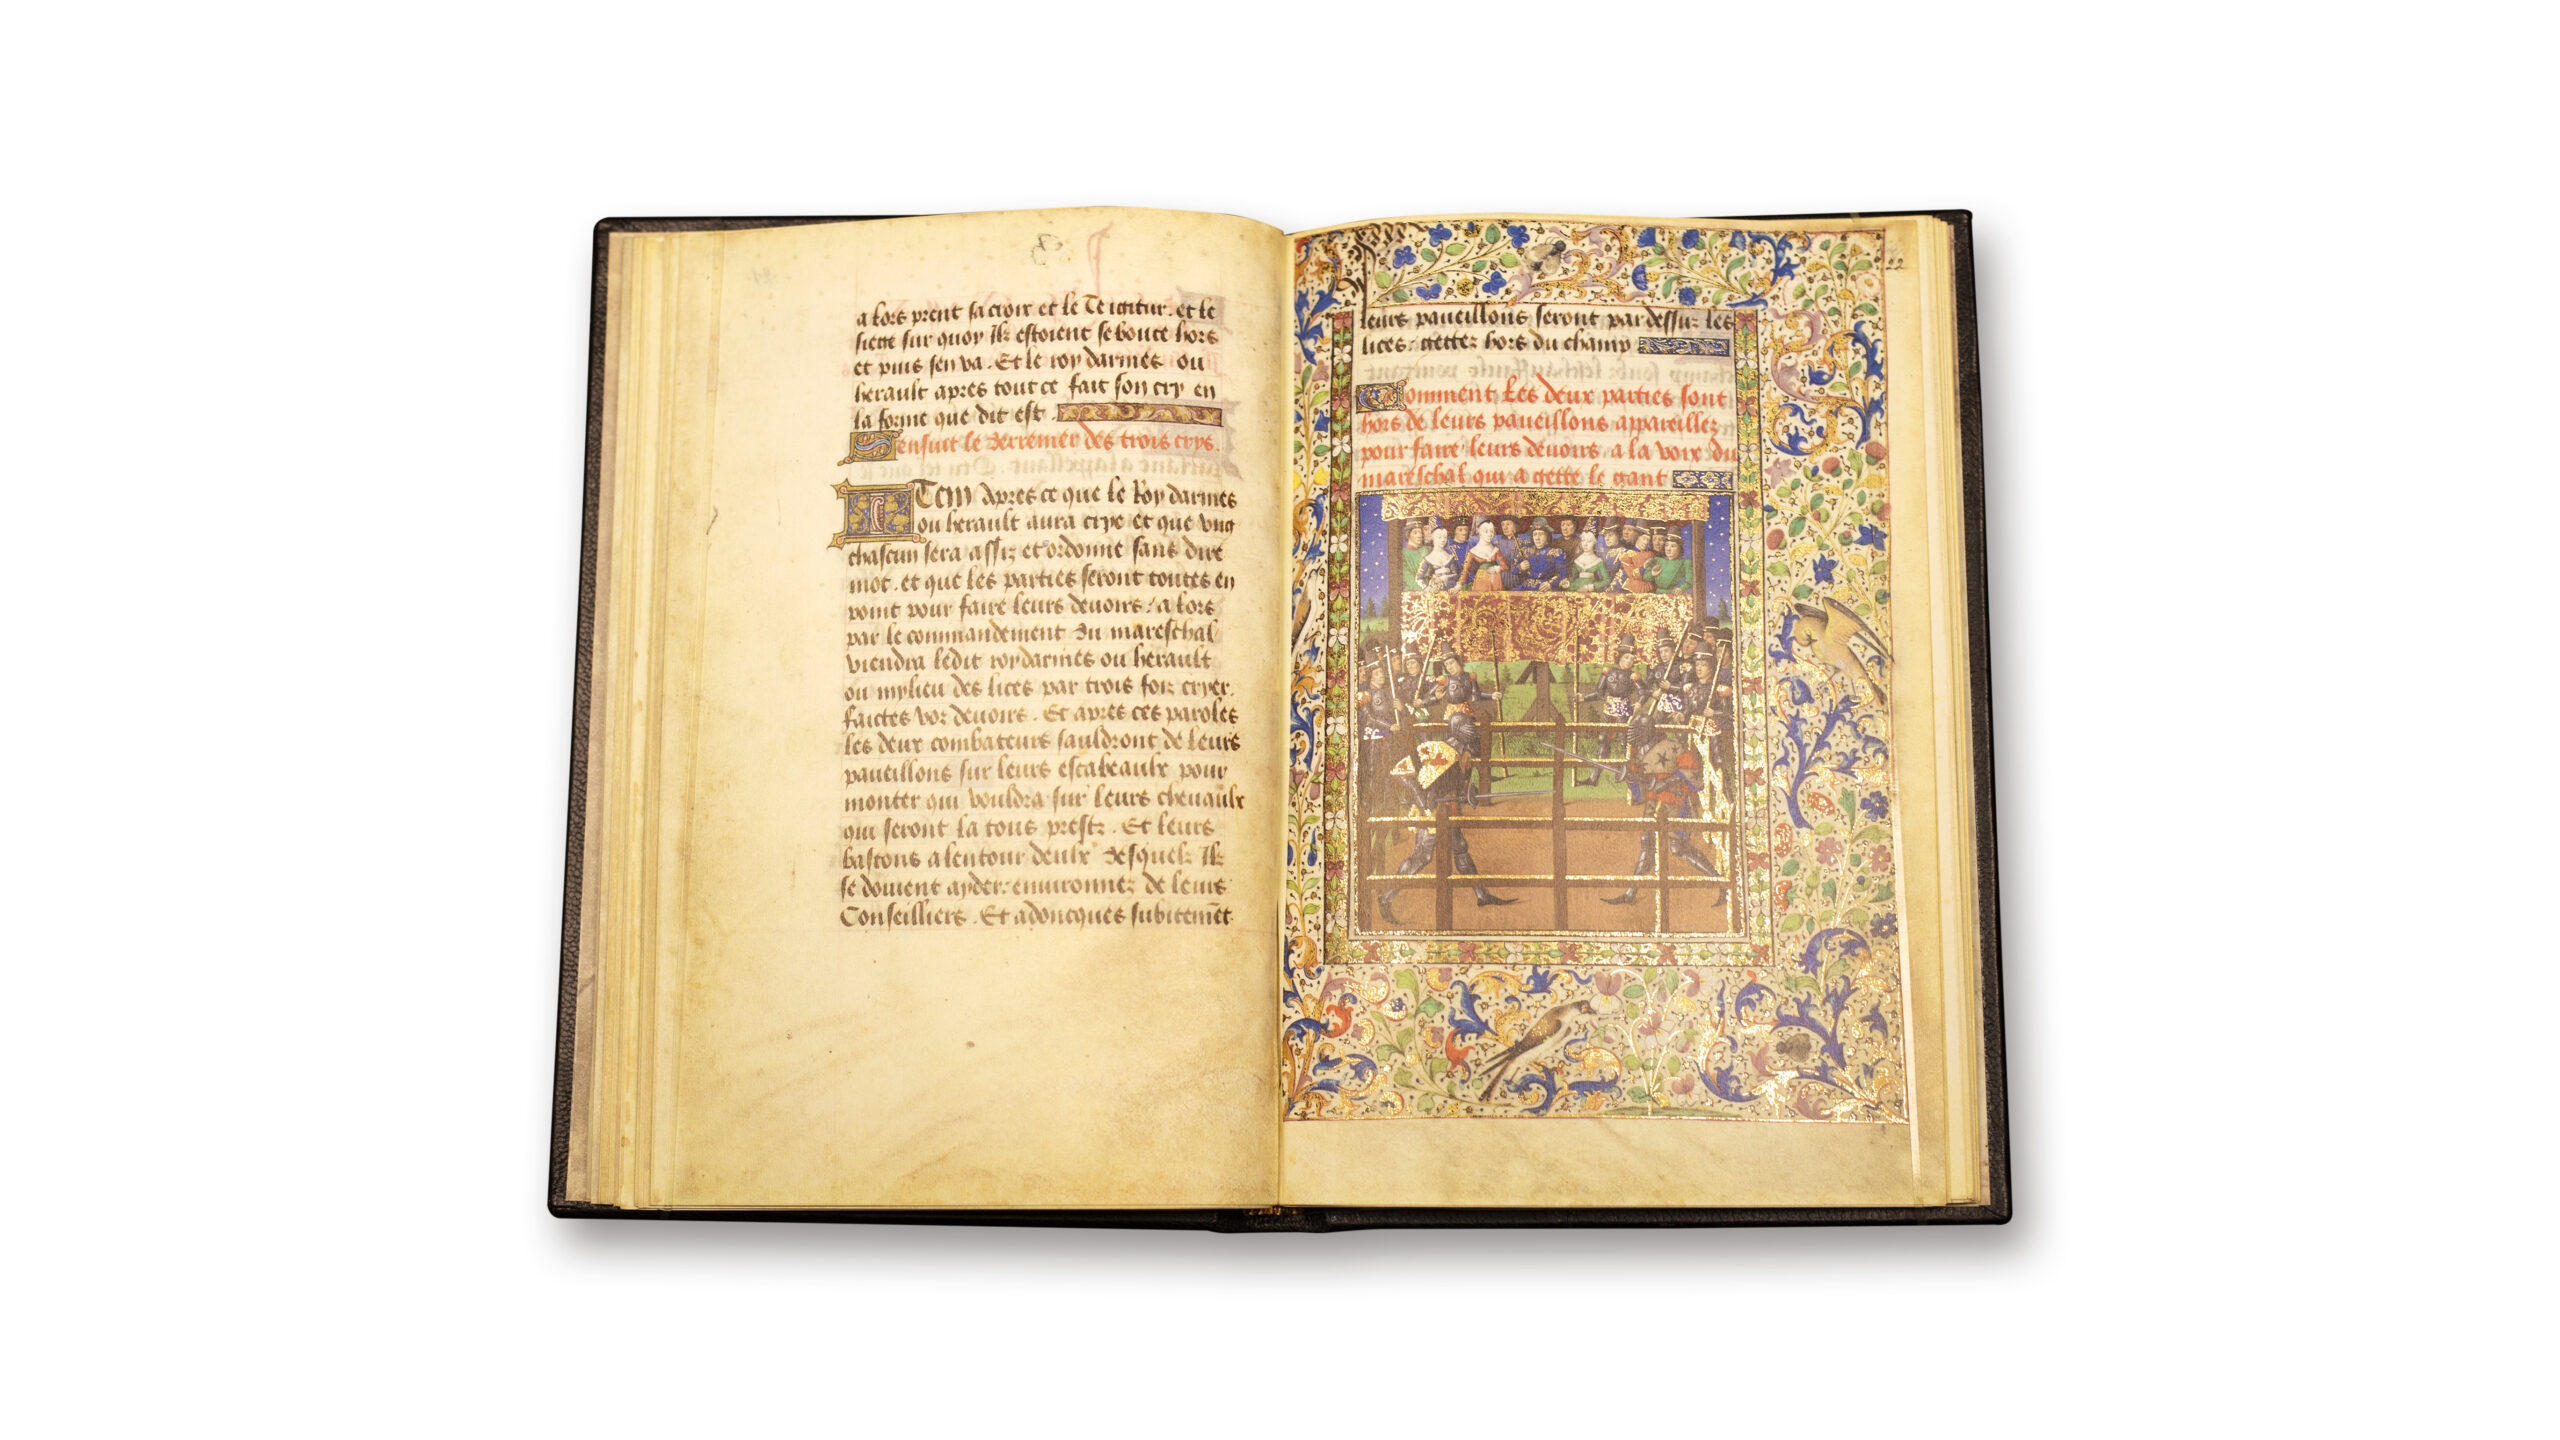 alors prent sa croix et le Te igitur. et le
siege sur quoy ilz estoient se boute hors
et puis sen va. Et le roy darmes ou
herault apres tout ce fait son cry en
la forme que dit est.
Sensuit le derremer des trois crys.
ITem Apres ce que le Roy darmes
ou herault aura crye et que ung
chascun sera assiz et ordonne sans dire
mot. et que les parties seront toutes en
point pour faire leurs devoirs: alors
par le commandement du mareschal
viendra ledit roy darmes ou herault
ou mylieu des lices par trois foiz cryer.
faictes voz devoirs. Et apres ces paroles
les deux combateurs sauldront de leurs
paveillons sur leurs escabeaulx pour
monter qui vouldra sur leurs chevaulx
qui seront la tous prestz. Et leurs
bastons alentour deulx desquelz ilz
se doivent ayder: environnez de leurs
Conseilliers. Et adoncques subitemēt
22
leurs paveillons seront par dessuz les
lices: gettez hors du champ
Comment Les deux parties sont
hors de leurs paveillons appareillez
pour faire leurs devoirs a la voix du
mareschal qui a gette le gant